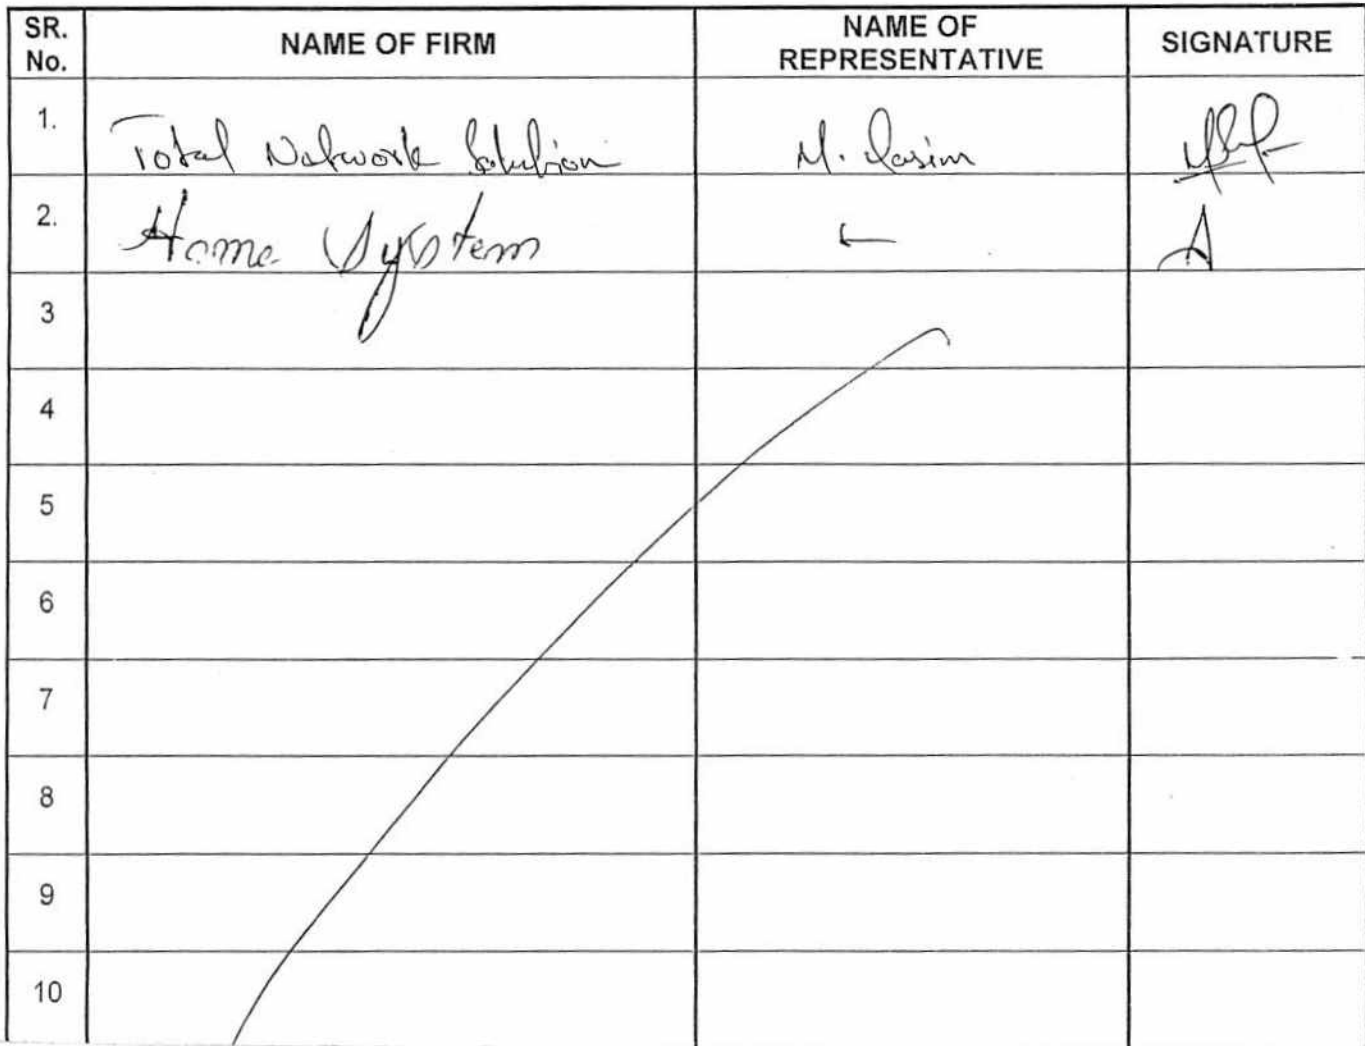 SR. No.
NAME OF FIRM
NAME OF REPRESENTATIVE
SIGNATURE
1. Total Network Solution M. Qasim
2. Home System
3
4
5
6
7
8
9
10